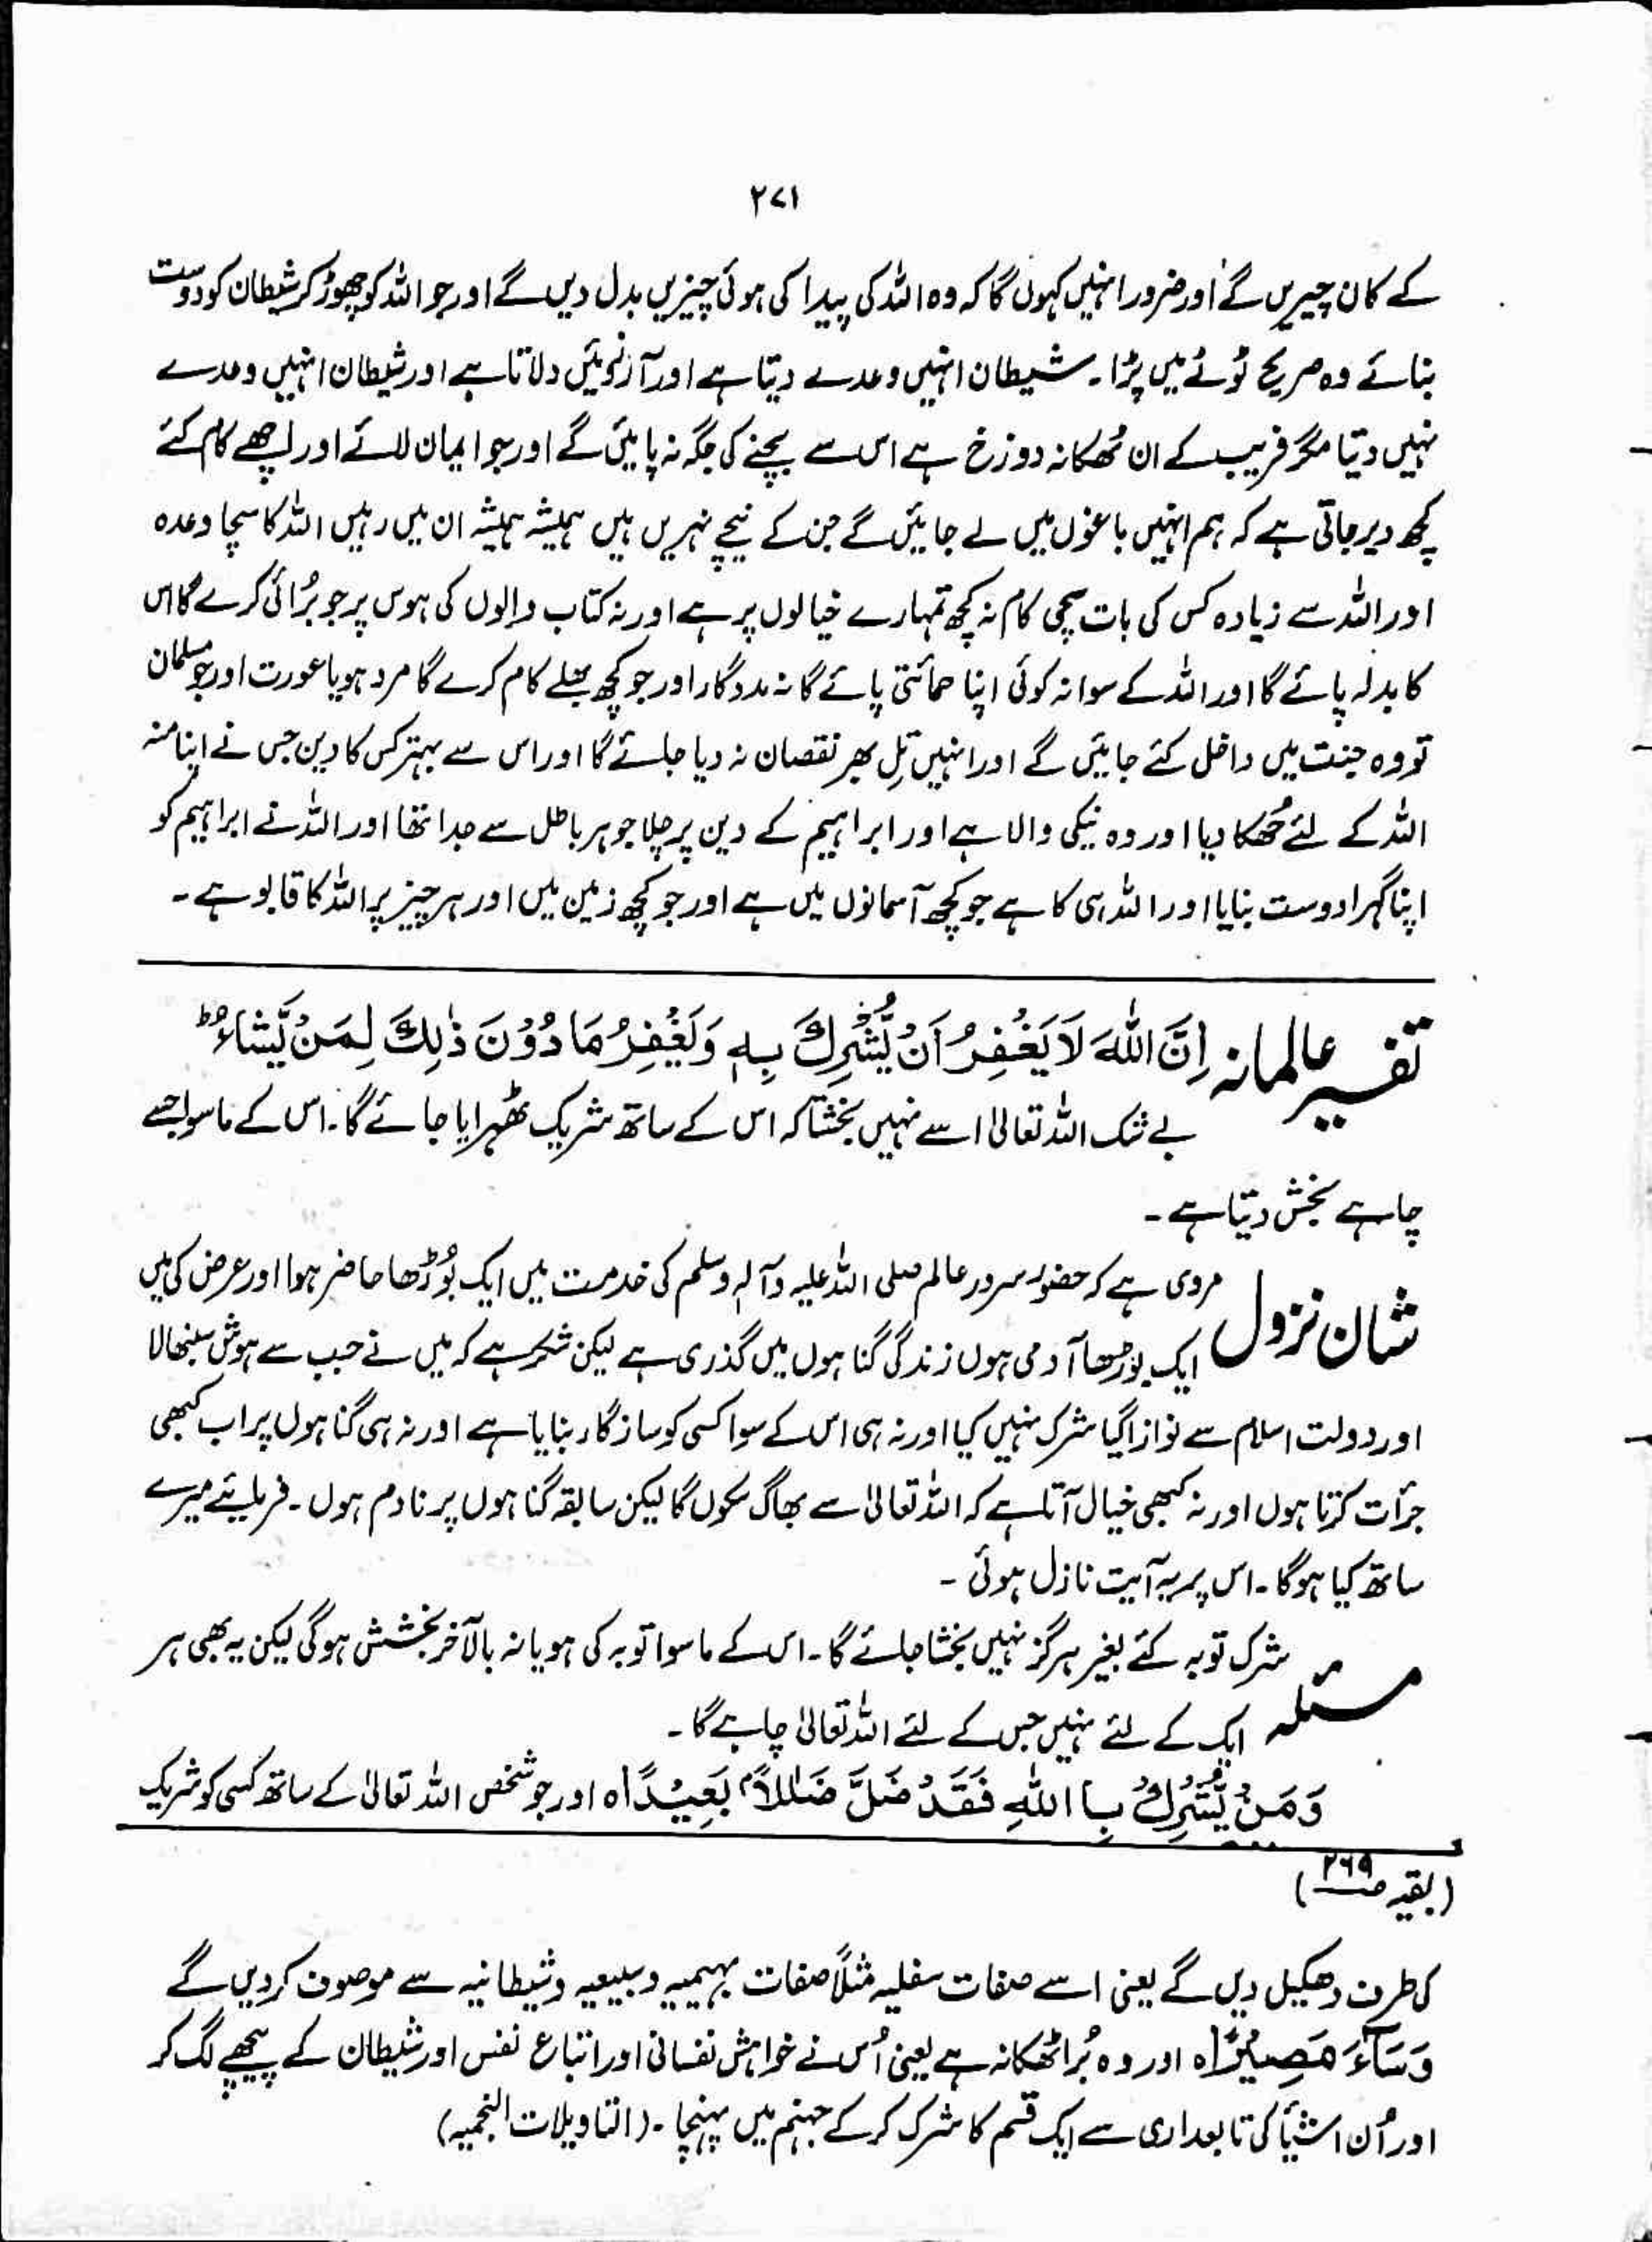 ۲۷۱
کے کان چیریں گے اور ضرور انہیں کہوں گا کہ وہ اللہ کی پیدا کی ہوئی چیزیں بدل دیں گے اور جو اللہ کو چھوڑ کر شیطان کو دوست
بنائے وہ صریح ٹوٹے میں پڑا۔ شیطان انہیں وعدے دیتا ہے اور آرزوئیں دلاتا ہے اور شیطان انہیں وعدے
نہیں دیتا مگر فریب کے ان ٹھکانہ دوزخ ہے اس سے بچنے کی جگہ نہ پائیں گے اور جو ایمان لائے اور اچھے کام کئے
کچھ دیر جاتی ہے کہ ہم انہیں باغوں میں لے جائیں گے جن کے نیچے نہریں ہیں ہمیشہ ہمیشہ ان میں رہیں اللہ کا سچا وعدہ
اور اللہ سے زیادہ کس کی بات سچی کام نہ کچھ تمہارے خیالوں پر ہے اور نہ کتاب والوں کی ہوس پر جو بُرائی کرے گا اس
کا بدلہ پائے گا اور اللہ کے سوا نہ کوئی اپنا حمائتی پائے گا نہ مددگار اور جو کچھ بھلے کام کرے گا مرد ہو یا عورت اور ہو مسلمان
تو وہ جنت میں داخل کئے جائیں گے اور انہیں تِل بھر نقصان نہ دیا جائے گا اور اس سے بہتر کس کا دین جس نے اپنا منہ
اللہ کے لئے جُھکا دیا اور وہ نیکی والا ہے اور ابراہیم کے دین پر چلا جو ہر باطل سے جدا تھا اور اللہ نے ابراہیم کو
اپنا گہرا دوست بنایا اور اللہ ہی کا ہے جو کچھ آسمانوں میں ہے اور جو کچھ زمین میں اور ہر چیز پر اللہ کا قابو ہے۔
تفسیر عالمانہ اِنَّ اللّٰهَ لَا یَغْفِرُ اَنْ یُّشْرَكَ بِهٖ وَیَغْفِرُ مَا دُوْنَ ذٰلِكَ لِمَنْ یَّشَآءُ ط
بے شک اللہ تعالیٰ اسے نہیں بخشتا کہ اس کے ساتھ شریک ٹھہرایا جائے گا۔ اس کے ماسوا جسے
چاہے بخش دیتا ہے۔
شان نزول مروی ہے کہ حضور سرور عالم صلی اللہ علیہ وآلہٖ وسلم کی خدمت میں ایک بُوڑھا حاضر ہوا اور عرض کی میں
ایک بوڑھا آدمی ہوں زندگی گناہوں میں گذری ہے لیکن شکر ہے کہ میں نے جب سے ہوش سنبھالا
اور دولت اسلام سے نوازا گیا شرک نہیں کیا اور نہ ہی اس کے سوا کسی کو سازگار بنایا ہے اور نہ ہی گناہوں پر اب کبھی
جرأت کرتا ہوں اور نہ کبھی خیال آتا ہے کہ اللہ تعالیٰ سے بھاگ سکوں گا لیکن سابقہ گناہوں پر نادم ہوں۔ فرمائیے میرے
ساتھ کیا ہوگا۔ اس پر یہ آیت نازل ہوئی۔
مسئلہ شرک توبہ کئے بغیر ہرگز نہیں بخشا جائے گا۔ اس کے ماسوا توبہ کی ہو یا نہ بالآخر بخشش ہوگی لیکن یہ بھی ہر
ایک کے لئے نہیں جس کے لئے اللہ تعالیٰ چاہے گا۔
وَمَنْ یُّشْرِكْ بِاللّٰهِ فَقَدْ ضَلَّ ضَلٰلاًۢ بَعِیْدًا ٥ اور جو شخص اللہ تعالیٰ کے ساتھ کسی کو شریک
(بقیہ صـ ۲۶۹)
کی طرف دھکیل دیں گے یعنی اسے صفات سفلیہ مثلاً صفات بہیمیہ و سبیعیہ و شیطانیہ سے موصوف کردیں گے
وَسَآءَ مَصِیْرًا ٥ اور وہ بُرا ٹھکانہ ہے یعنی اُس نے خواہش نفسانی اور اتباع نفس اور شیطان کے پیچھے لگ کر
اور اُن اشیأ کی تابعداری سے ایک قسم کا شرک کر کے جہنم میں پہنچا۔ (التاویلات النجمیہ)